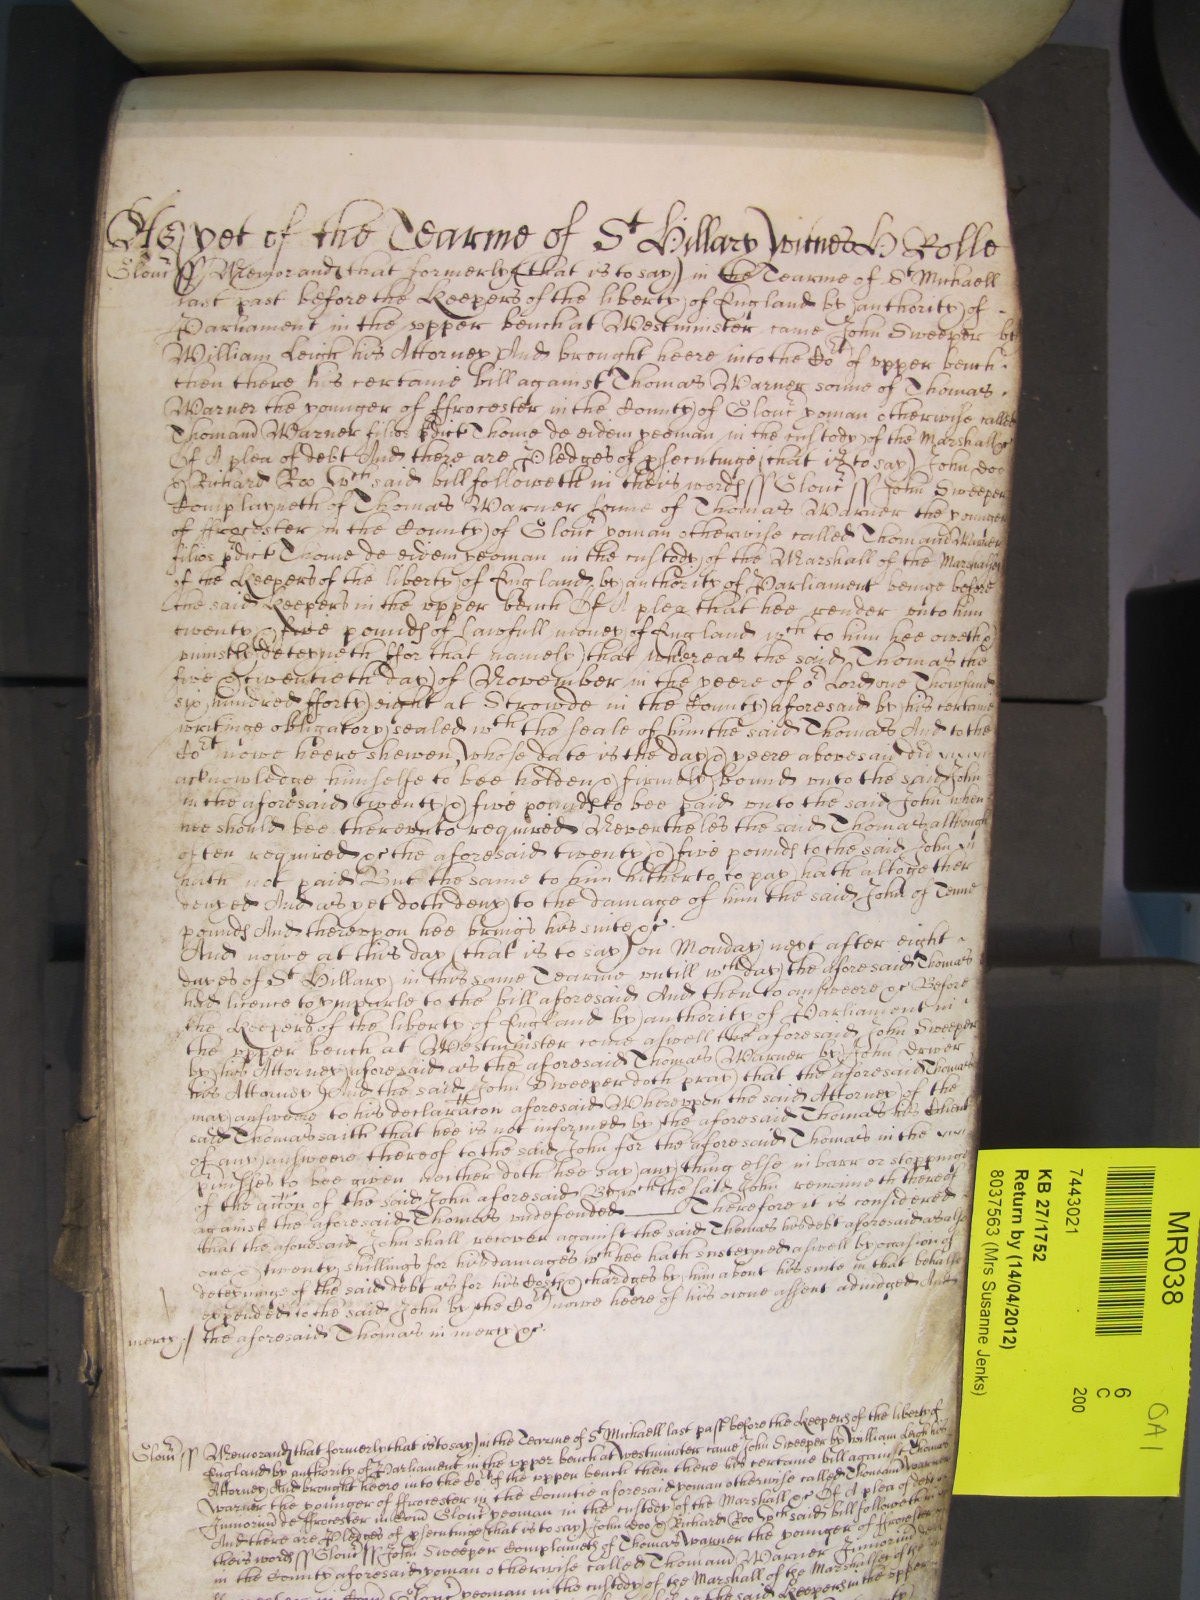 As yet of the Tearme of St Hillary witnes H Rolle
Glouc ss Memorand that formerly (that is to say) in the Tearme of St Michaell
last past before the Keepers of the liberty of England by authority of
Parliament in the upper bench at Westminister came John Sweeper by
William Leigh his Attorney And brought heere into the Cort of upper bench
then there his certaine bill against Thomas Warner sonne of Thomas
Warner the younger of ffrocester in the County of Glouc yoman otherwise called
Thomam Warner filior pdict Thome de eidem yeoman in the custody of the Marshall &c
Of A plea of debt And there are Pledges of psecutinge (that is to say) John Doo
& Richard Roo wch said bill followeth in theis words ss Glouc ss John Sweeper
Complayneth of Thomas Warner sonne of Thomas Warner the younger
of ffrocester in the County of Glouc yoman otherwise called Thomam Warner
filior pdict Thome de eidem yeoman in the custody of the Marshall of the Marshalsey
of the Keepers of the liberty of England by authority of Parliament beinge before
the said Keepers in the upper bench Of A plea that hee render unto him
twenty & five pounds of lawfull money of England wch to him hee oweth &
uniustly deteyneth ffor that namely that whereas the said Thomas the
five & twentieth day of November in the yeere of or Lord one Thowsand
six hundred fforty eight at Strowde in the County aforesaid by his certaine
writinge obligatory sealed wth the seale of him the said Thomas And to the
Cort nowe heere shewen whose date is the day & yeere abovesaid did
acknowledge himselfe to bee holden & firmely bound unto the said John
in the aforesaid twenty & five pounds to bee paid unto the said John when
hee should bee thereunto required Neverthelesse the said Thomas although
often required &c the aforesaid twenty & five pounds to the said John
hath not paid But the same to him hitherto to pay hath altogether
denyed And as yet doth deny to the damage of him the said John of Tenne
pounds And thereupon hee brings his suite &c
And nowe at this day (that is to say) on Monday next after eight
dayes of St Hillary in this same Tearme untill wch day the aforesaid Thomas
had licence to ymparle to the bill aforesaid And then to answeere &c Before
the Keepers of the liberty of England by authority of Parliament in
the upper bench at Westminister come aswell the aforesaid John Sweeper
by his Attorney aforesaid as the aforesaid Thomas Warner by John
his Attorney And the said John Sweeper doth pray that the aforesaid Thomas
may answeere to his declaracon aforesaid Whereupon the said Attorney of the
said Thomas saith that hee is not informed by the aforesaid Thomas his Client
of any answeere thereof to the said John for the aforesaid Thomas in the
pmisses to bee given neither doth hee say any thing else in barr or stoppinge
of the accon of the said John aforesaid By wch the said John remaineth thereof
against the aforesaid Thomas undefended Therefore it is considered
that the aforesaid John shall recover against the said Thomas his debt aforesaid as alsoe
one & twenty shillings for his damages wch hee hath susteyned aswell by occasion of
deteyninge of the said debt as for his Costs & chardges by him about his suite in that behalfe
expended to the said John by the Cort nowe heere of his owne assent adiudged And
mercy / the aforesaid Thomas in mercy &c
Glouc ss Memorand that formerly that is to say in the Tearme of St Michaell last past before the Keepers of the liberty of
England by authority of Parliament in the upper bench at Westminster came John Sweeper by William Leigh his
Attorney And brought heere into the Cort of the upper bench then there his certaine bill against Thomas
Warner the younger of ffrocester in the Countie aforesaid yoman otherwise called Thomam Warner
Juniorem de ffrocester in Com Glouc yeoman in the custody of the Marshall &c Of A plea of debt
And there are Pledges of psecutinge (that is to say) John Doo & Richard Roo wch said bill followeth in
theis words ss Glouc ss John Sweeper Complaineth of Thomas Warner the younger of ffrocester
in the County aforesaid yoman otherwise called Thomam Warner Juniorem
Glouc yeoman in the custody of the Marshall of the Marshalsey of the
the said Keepers in the upper
MR038
7443021
KB 27/1752
Return by (14/04/2012)
8037563 (Mrs Susanne Jenks)
6
C
200
OA1